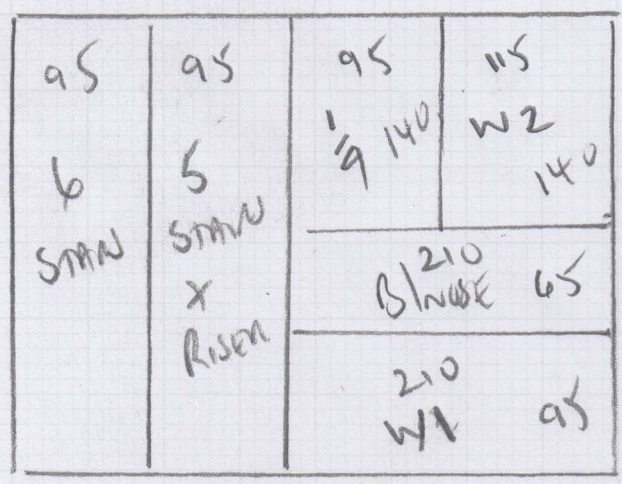 95
6
STAIR
95
5
STAIR
X
RISER
95
1/9 140
115
W2
140
210
B/NOSE 65
210
W1 95